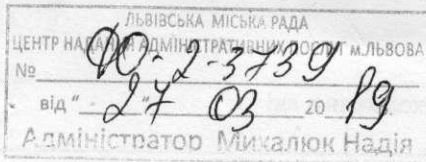 ЛЬВІВСЬКА МІСЬКА РАДА
ЦЕНТР НАДАННЯ АДМІНІСТРАТИВНИХ ПОСЛУГ м.ЛЬВОВА
№ Ю-2-3739
від "27" 03 2019
Адміністратор Михалюк Надія